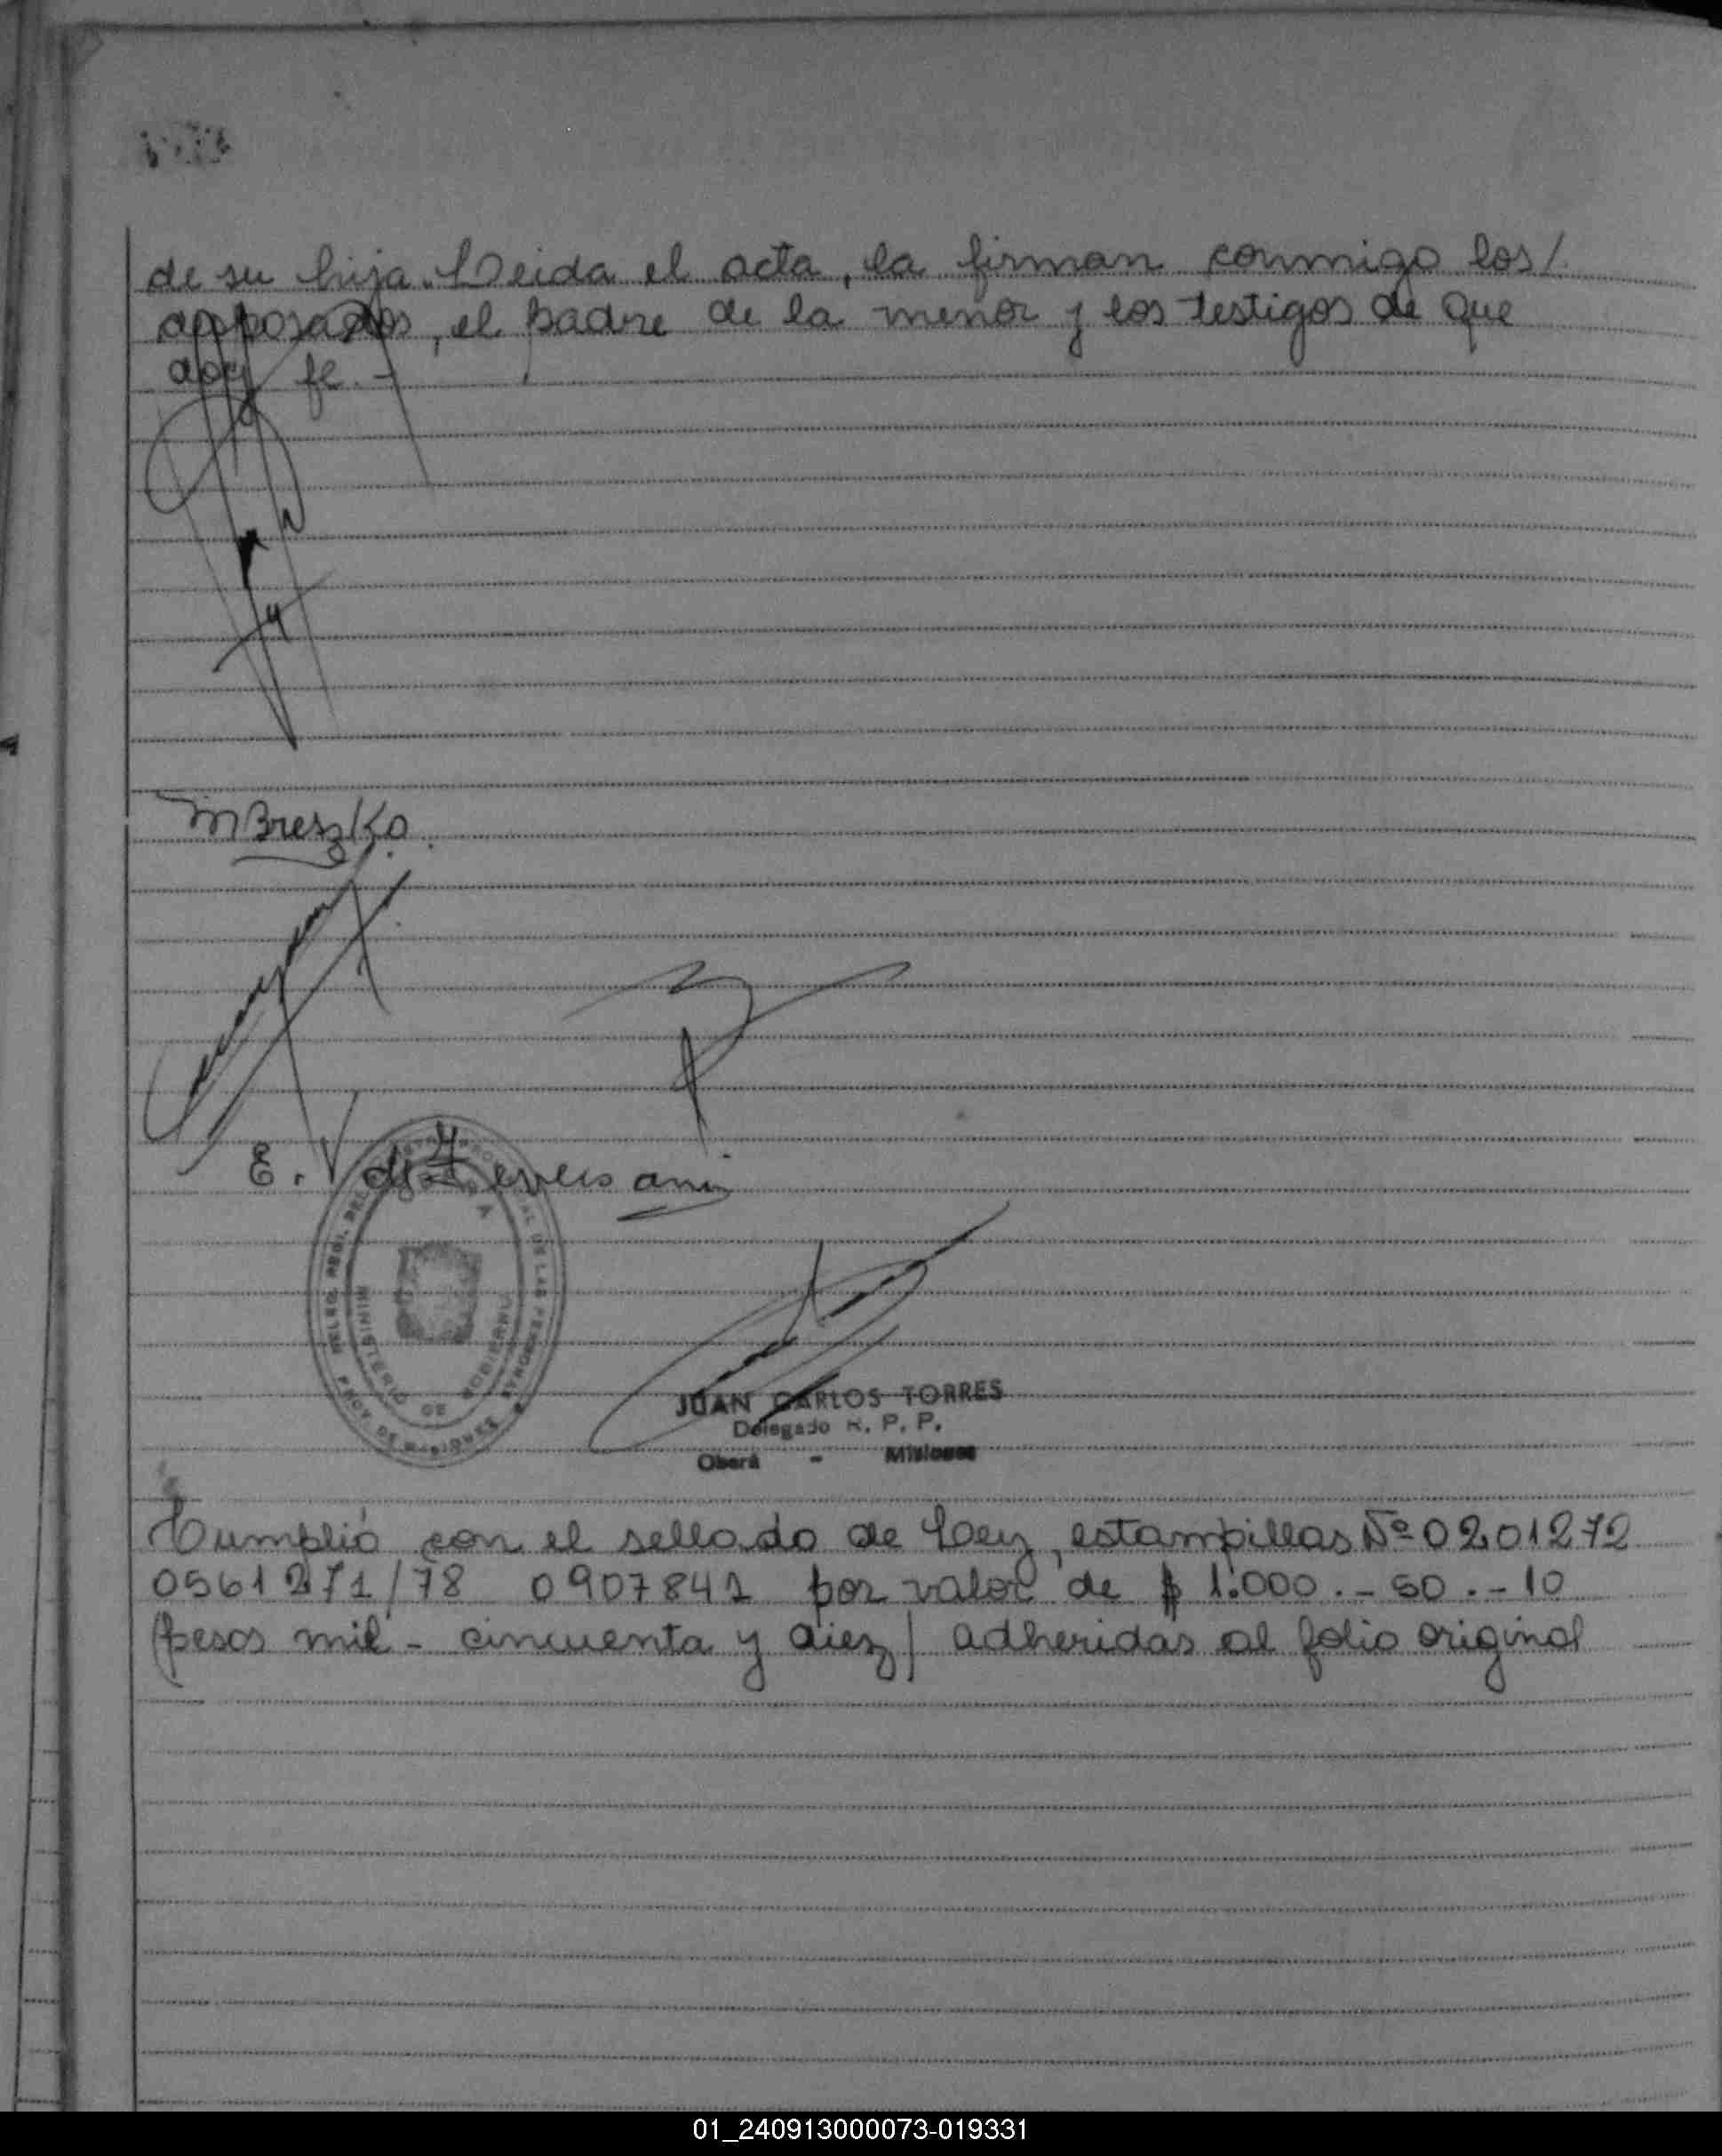 de su hija. Leida el acta, la firman conmigo los/
apposados, el padre de la menor y los testigos de que
doy fe.-
MBreszko.
E. V de
DELEG. REGI. DE LAS PERSONAS
PROV. DE MISIONES
MINISTERIO DE GOBIERNO
JUAN CARLOS TORRES
Delegado R. P. P.
Oberá - Misiones
Cumplió con el sellado de Ley, estampillas Nº 0201272
0561271/78 0907841 por valor de $ 1.000.-50.-10
(pesos mil - cincuenta y diez) adheridas al folio original
01_240913000073-019331